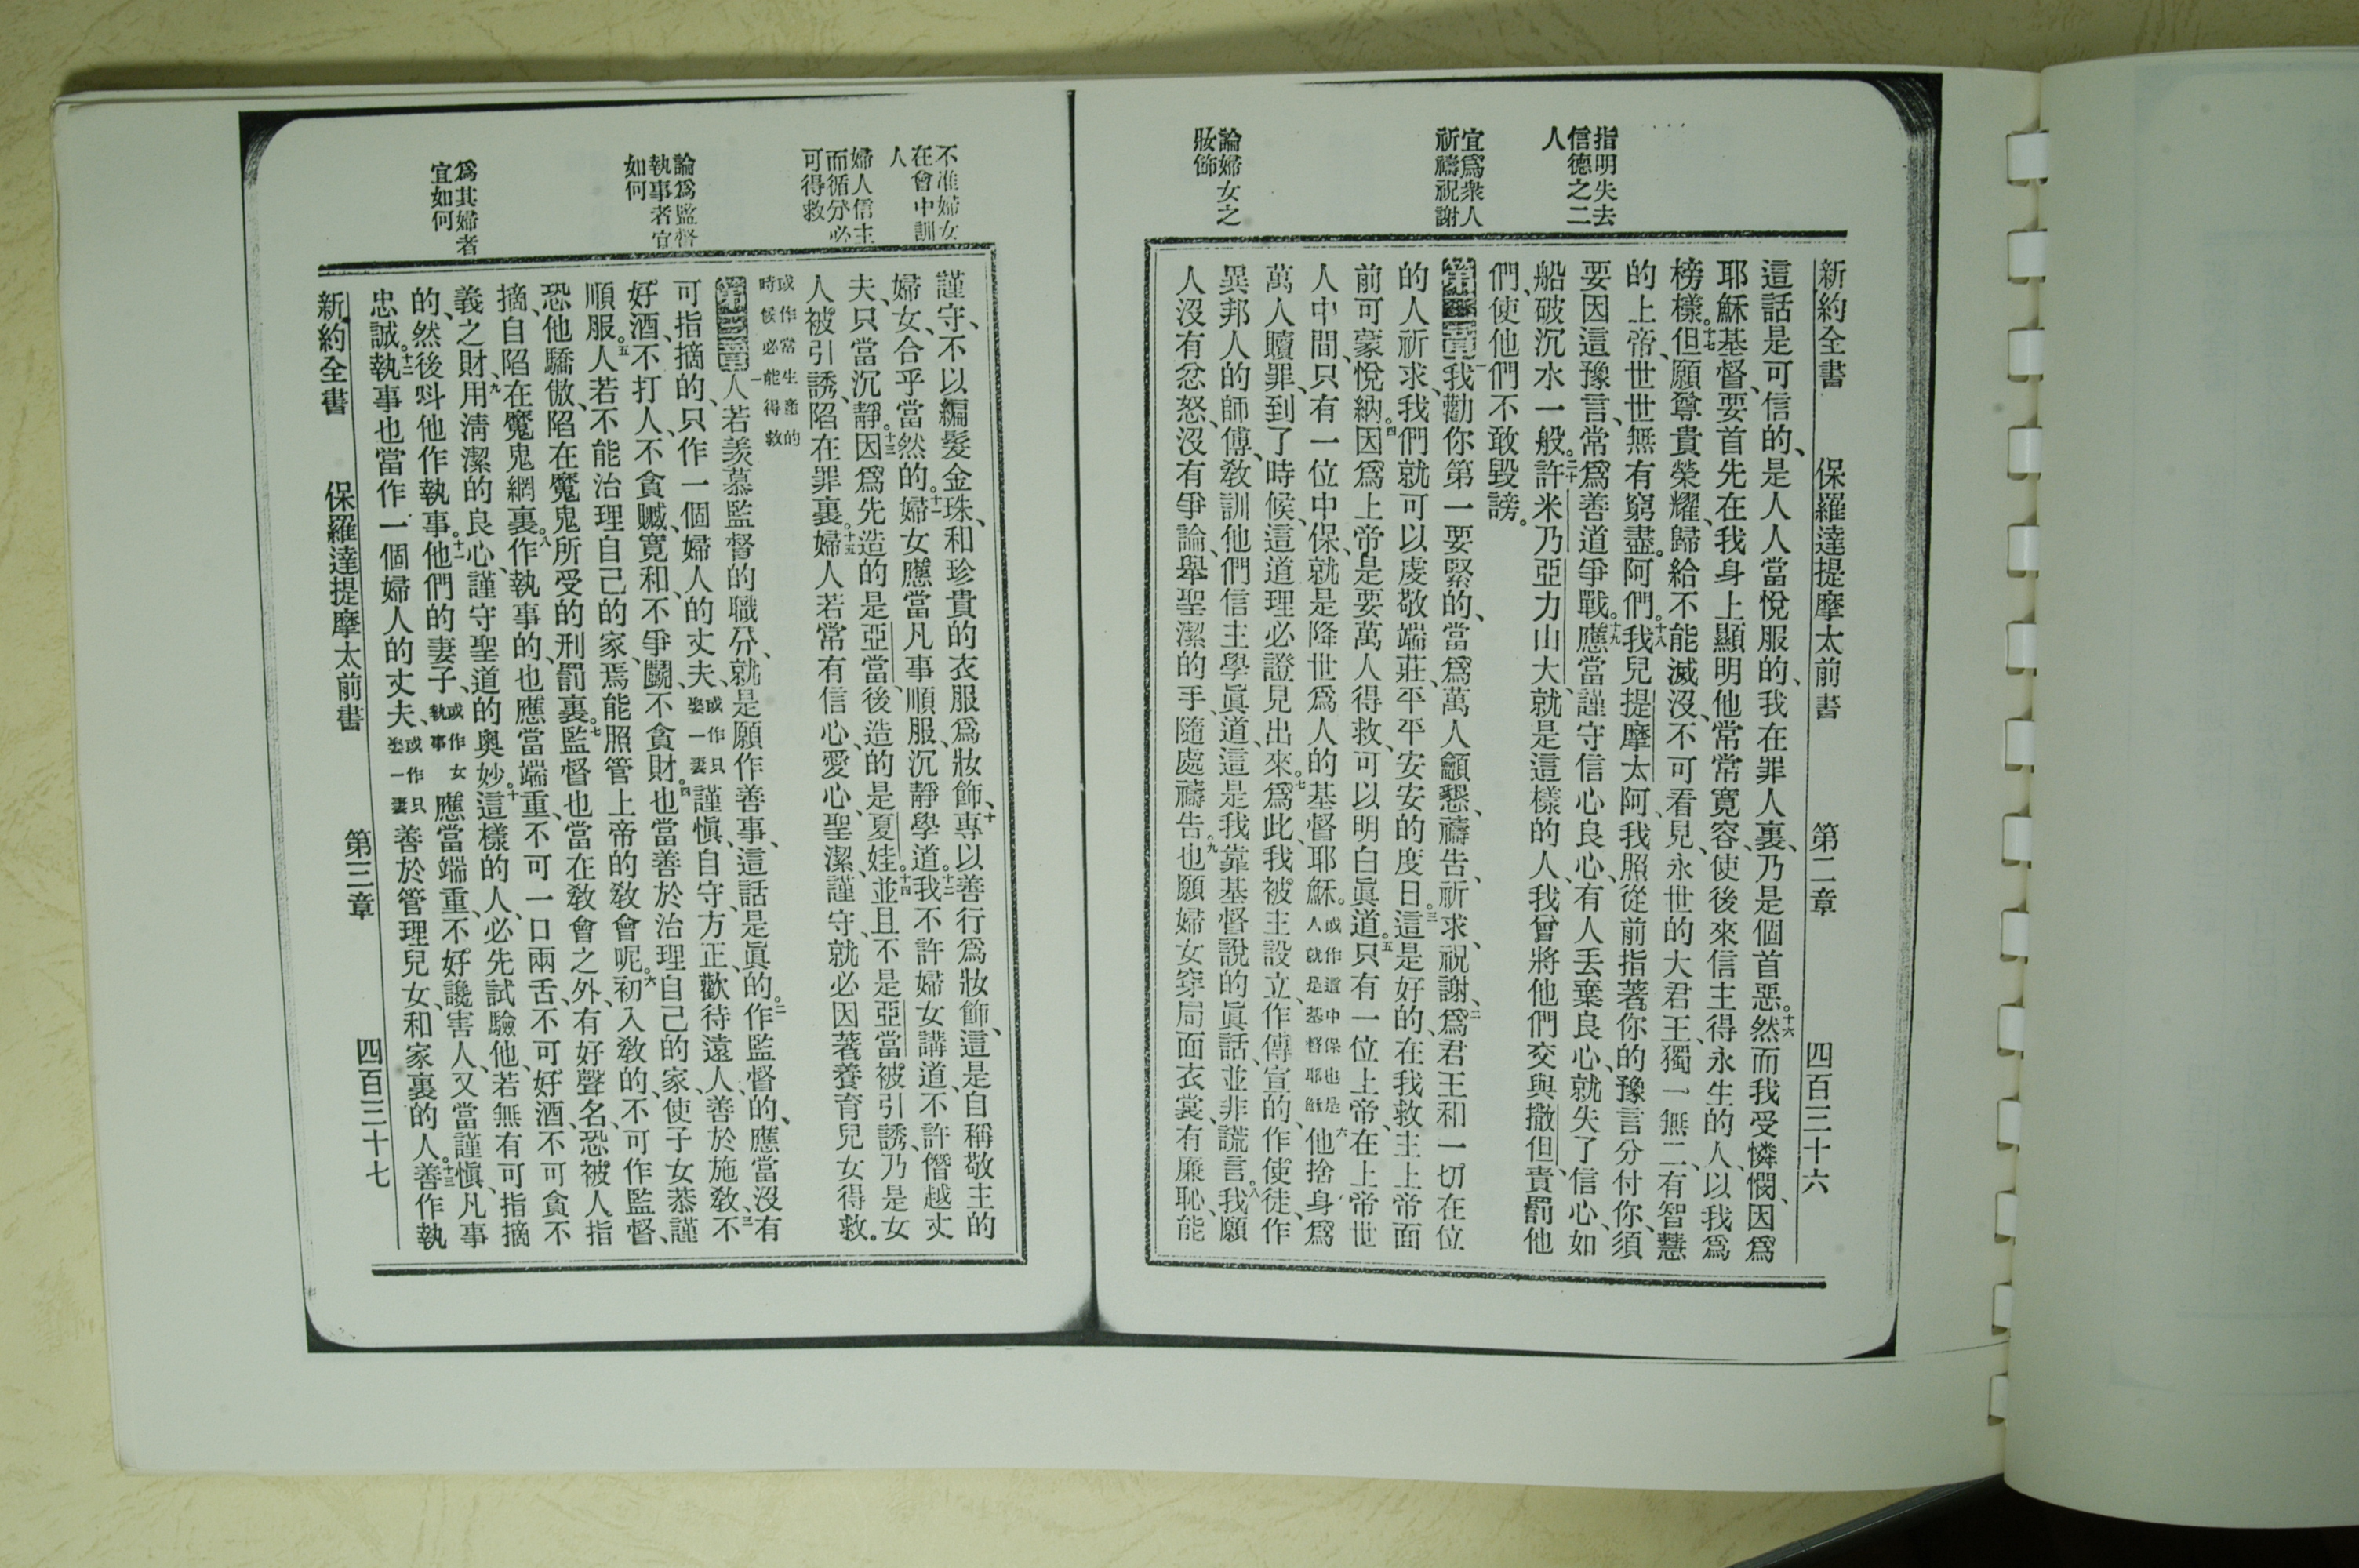 指明失去
信德之二
人
宜爲衆人
祈禱祝謝
論婦女之
妝飾
新約全書 保羅達提摩太前書 第二章 四百三十六
這話是可信的、是人人當悅服的、我在罪人裏、乃是個首惡。十六然而我受憐憫、因爲
耶穌基督、要首先在我身上顯明他常常寬容、使後來信主得永生的人、以我爲
榜樣。十七但願尊貴榮耀、歸給不能滅沒、不可看見、永世的大君王、獨一無二、有智慧
的上帝、世世無有窮盡。阿們。十八我兒提摩太阿、我照從前指著你的豫言分付你、須
要因這豫言、常爲善道爭戰。十九應當謹守信心良心、有人丟棄良心、就失了信心、如
船破沉水一般。二十許米乃亞力山大、就是這樣的人、我曾將他們交與撒但、責罰他
們、使他們不敢毀謗。
第二章一我勸你第一要緊的、當爲萬人籲懇、禱告、祈求、祝謝、二爲君王和一切在位
的人祈求、我們就可以虔敬端莊、平平安安的度日。三這是好的、在我救主上帝面
前可蒙悅納。四因爲上帝是要萬人得救、可以明白眞道。五只有一位上帝、在上帝世
人中間、只有一位中保、就是降世爲人的基督耶穌。或作這中保也是人就是基督耶穌六他捨身爲
萬人贖罪、到了時候、這道理必證見出來。七爲此、我被主設立、作傳宣的、作使徒、作
異邦人的師傅、敎訓他們信主學眞道、這是我靠基督說的眞話、並非謊言。八我願
人沒有忿怒、沒有爭論、舉聖潔的手、隨處禱告。九也願婦女穿局面衣裳、有廉恥、能
不准婦女
在會中訓
人
婦人信主
而循分必
可得救
論爲監督
執事者宜
如何
爲其婦者
宜如何
謹守、不以編髮金珠、和珍貴的衣服爲妝飾、十專以善行爲妝飾、這是自稱敬主的
婦女、合乎當然的。十一婦女應當凡事順服、沉靜學道。十二我不許婦女講道、不許僭越丈
夫、只當沉靜。十三因爲先造的是亞當、後造的是夏娃。十四並且不是亞當被引誘、乃是女
人被引誘、陷在罪裏。十五婦人若常有信心、愛心、聖潔、謹守、就必因著養育兒女得救。
或作當生產的
時候必能得救
第三章一人若羨慕監督的職分、就是願作善事、這話是眞的。二作監督的、應當沒有
可指摘的、只作一個婦人的丈夫、或作只娶一妻謹愼、自守、方正、歡待遠人、善於施敎、三不
好酒、不打人、不貪贓、寬和、不爭鬭、不貪財。四也當善於治理自己的家、使子女恭謹
順服。五人若不能治理自己的家、焉能照管上帝的敎會呢。六初入敎的、不可作監督、
恐他驕傲、陷在魔鬼所受的刑罰裏。七監督也當在敎會之外、有好聲名、恐被人指
摘、自陷在魔鬼網裏。八作執事的、也應當端重、不可一口兩舌、不可好酒、不可貪不
義之財、九用淸潔的良心、謹守聖道的奧妙。十這樣的人、必先試驗他、若無有可指摘
的、然後呌他作執事。十一他們的妻子、或作女執事應當端重、不好讒害人、又當謹愼、凡事
忠誠。十二執事也當作一個婦人的丈夫、或作只娶一妻善於管理兒女、和家裏的人。十三善作執
新約全書 保羅達提摩太前書 第三章 四百三十七